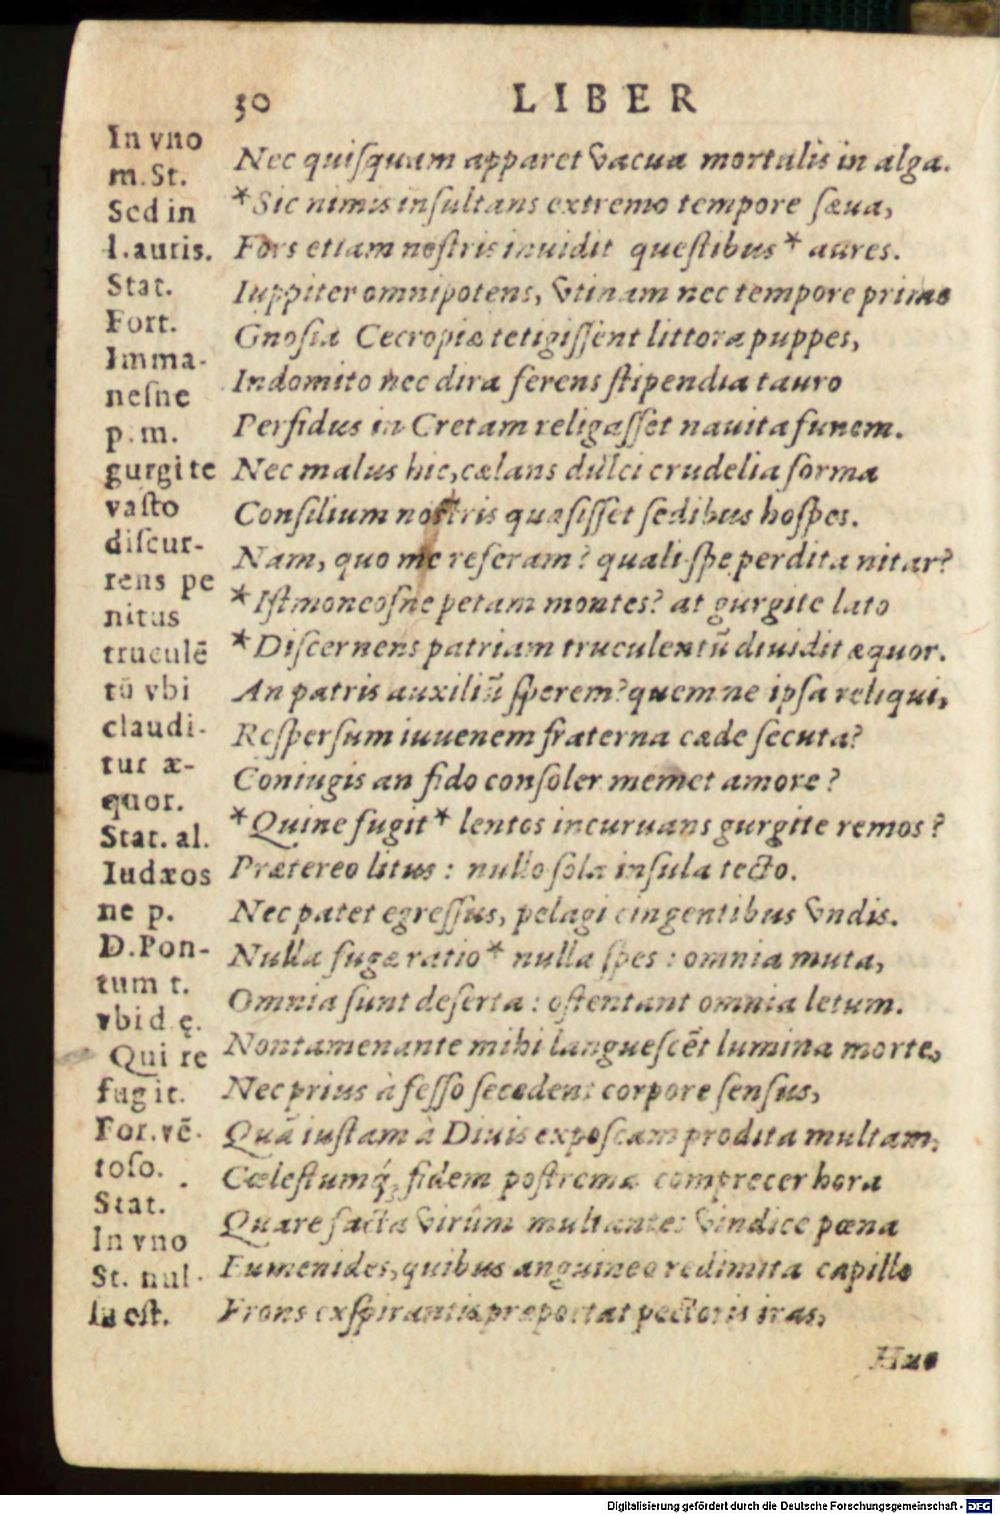 30 LIBER
In vno
m. St.
Sed in
l. auris.
Stat.
Fort.
Imma-
nesne
p. m.
gurgite
vasto
discur-
rens pe
nitus
truculē
tū vbi
claudi-
tur æ-
quor.
Stat. al.
Iudæos
ne p.
D. Pon-
tum t.
vbi d ę.
Qui re
fugit.
For. vē-
toso.
Stat.
In vno
St. nul-
la est.
Nec quisquam apparet vacua mortalis in alga.
*Sic nimis insultans extremo tempore sæua,
Fors etiam nostris inuidit questibus* aures.
Iuppiter omnipotens, vtinam nec tempore primo
Gnosia Cecropiæ tetigissent littora puppes,
Indomito nec dira ferens stipendia tauro
Perfidus in Cretam religasset nauita funem.
Nec malus hic, cælans dulci crudelia forma
Consilium nostris quæsisset sedibus hospes.
Nam, quo me referam? quali spe perdita nitar?
*Istmoneosne petam montes? at gurgite lato
*Discernens patriam truculentū diuidit æquor.
An patris auxiliū sperem? quemne ipsa reliqui,
Respersum iuuenem fraterna cæde secuta?
Coniugis an fido consoler memet amore?
*Quine fugit* lentos incuruans gurgite remos?
Prætereo litus: nullo sola insula tecto.
Nec patet egressus, pelagi cingentibus vndis.
Nulla fugæ ratio* nulla spes: omnia muta,
Omnia sunt deserta: ostentant omnia letum.
Non tamen ante mihi languescēt lumina morte,
Nec prius à fesso secedent corpore sensus,
Quā iustam à Diuis exposcam prodita multam,
Cælestumq́; fidem postrema comprecer hora
Quare facta virûm multantes vindice pœna
Eumenides, quibus anguineo redimita capillo
Frons exspirantis præportat pectoris iras,
Huc
Digitalisierung gefördert durch die Deutsche Forschungsgemeinschaft - DFG